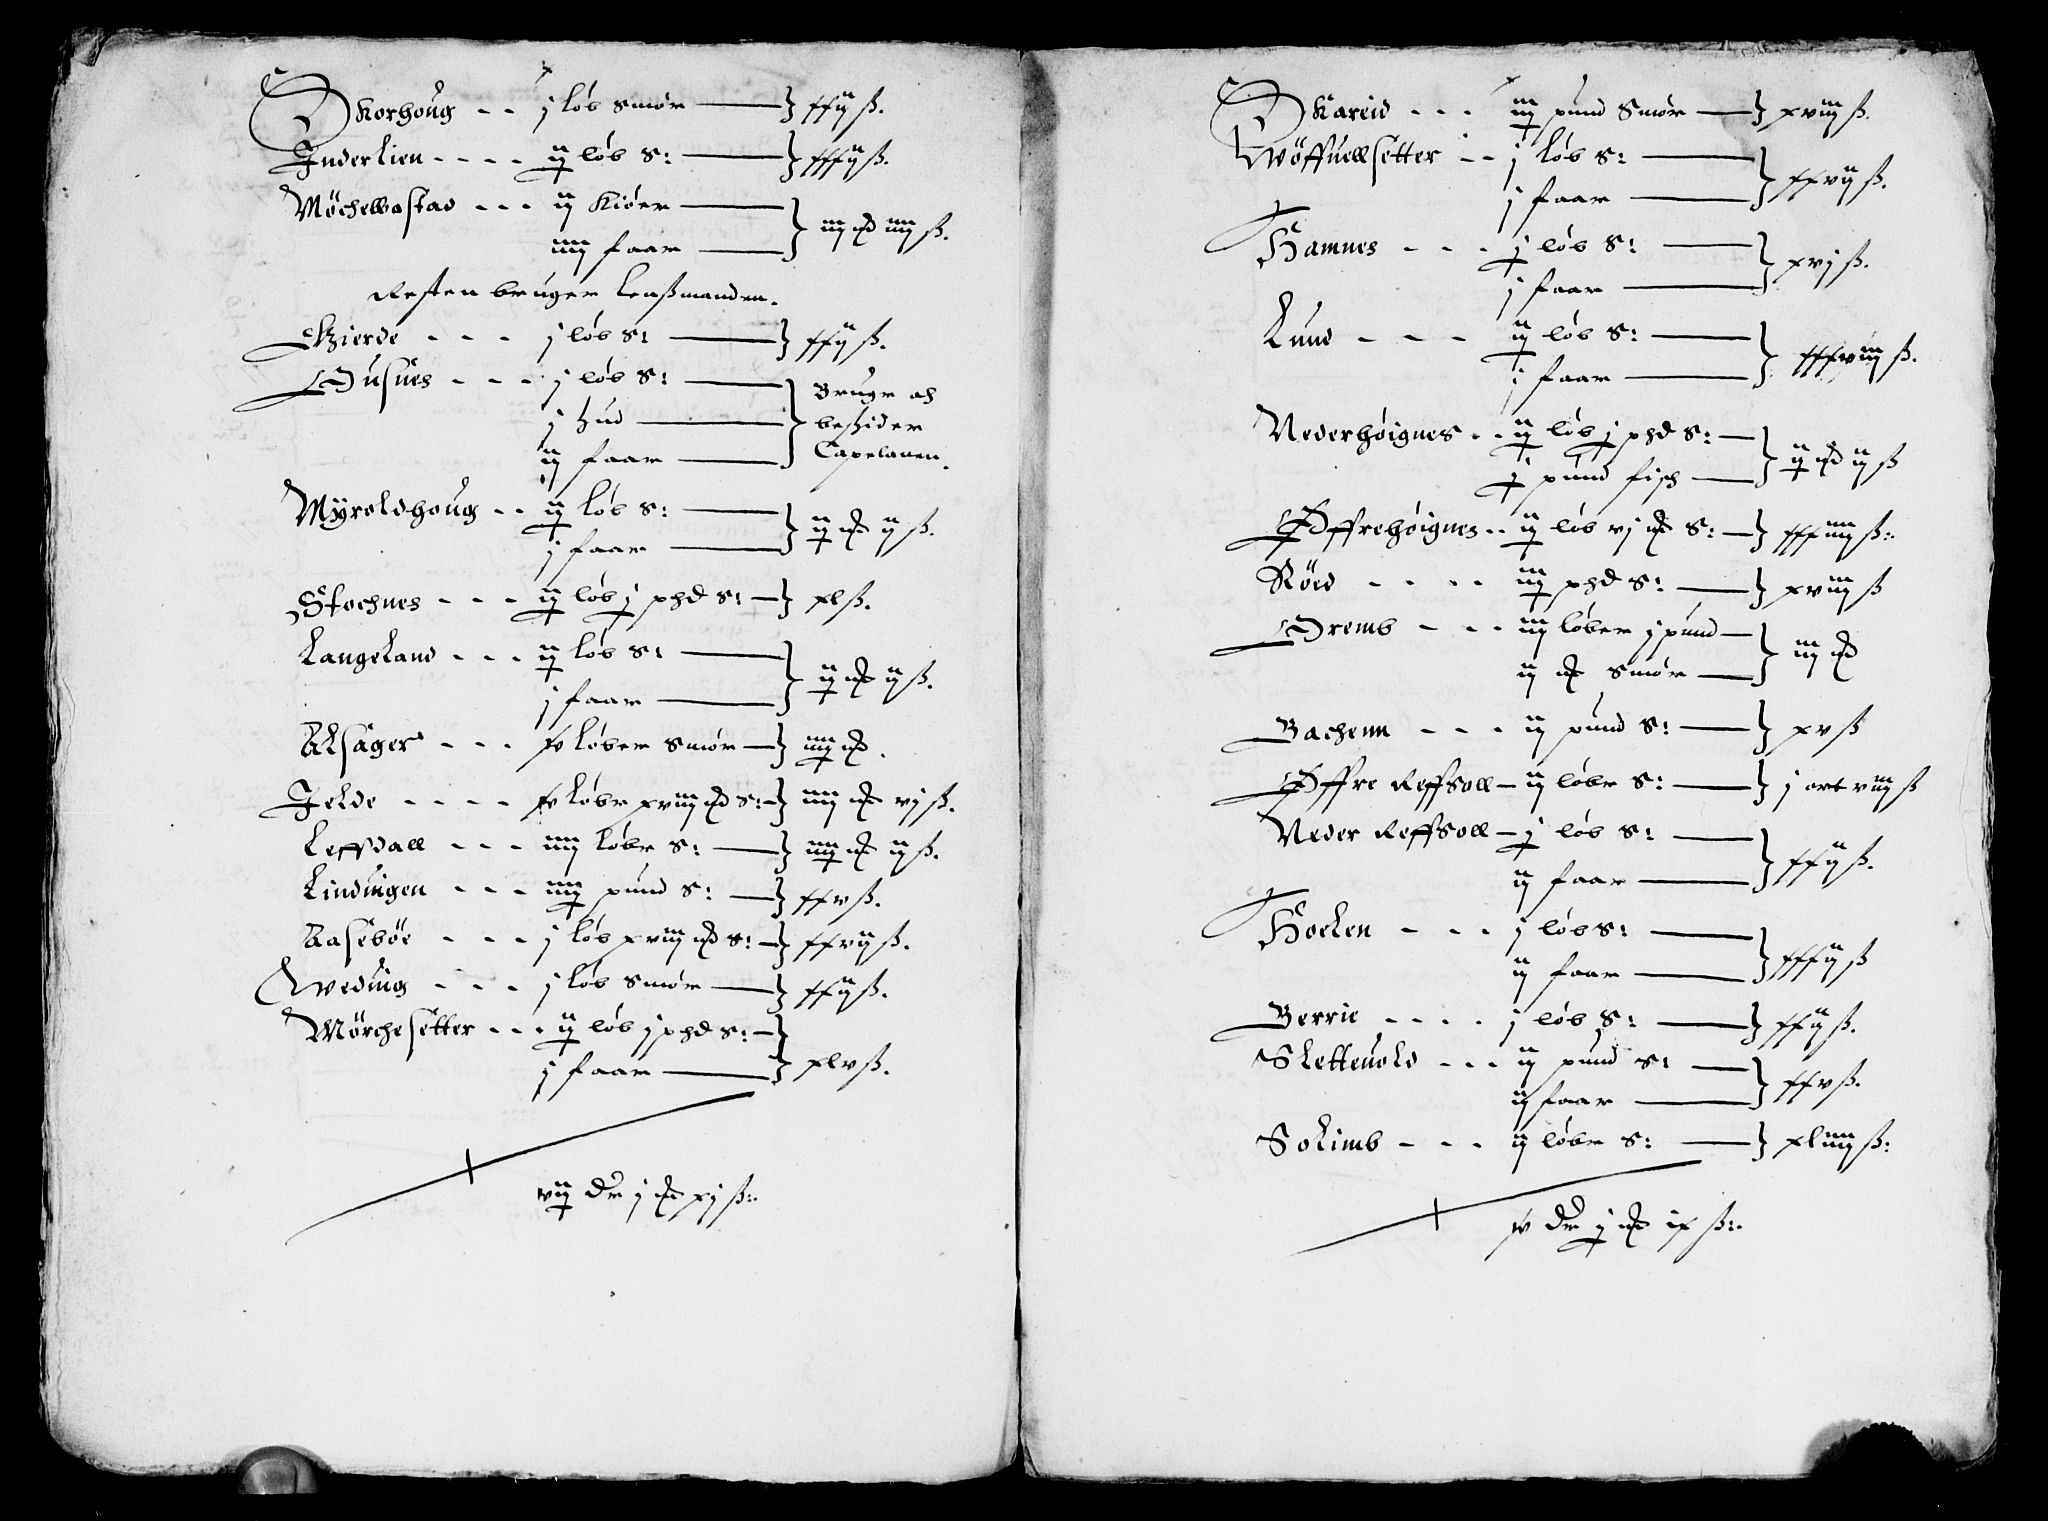 Skorhoug - - j løb smør — xxij ß.
Inderlien - - - - ij løb S: — xxxij ß.
Møchelbostad - - - ij Kiøer —
iiij faar — iij mk iiij ß.
Resten bruger lenßmanden.
Gierde - - - j løb S: — xxij ß.
Ousnes - - - j løb S: — Bruger och
j hud — beßider
ij faar — Capelanen.
Myroldhoug - - ij løb S: —
j faar — ij mk ij ß.
Stochnes - - - ij løb j phd S: — xl ß.
Langeland - - - ij løb S: —
j faar — ij mk ij ß.
Alsäger - - - xv løber smør — iiij mk.
Jelde - - - - xv løbr xviij mk S: — iiij mk vj ß.
Leffdall - - - iiij løbr S: — iiij mk ij ß.
Linduigen - - - iiij pund S: — xxv ß.
Aasebøe - - - j løb xviij mk S: — xxvij ß.
Qweduig - - - j løb smør — xxij ß.
Mørchesetter - - - ij løb j phd S: —
j faar — xlv ß.
vij dr j mk xj ß:
Skareid - - - iij pund Smør — xviij ß.
Twøffuellsetter - - j løb S: —
j faar — xxvij ß.
Hamnes - - - j løb S: —
j faar — xvj ß.
Lund - - - ij løb S: —
j faar — xxxviij ß.
Nederhøignes - - ij løb j phd S: —
j pund fisch — ij mk ij ß
Øffrehøignes - - ij løb vj mk S: — xxxiiij ß:
Røed - - - - iij phd S: — xviij ß
Dremb - - - iij løber j pund —
ij mk smør — iij mk
Bachenn - - - ij pund S: — xv ß
Øffre Reffsoll — ij løbr S: — j ort viij ß
Neder Reffsoll — j løb S: —
ij faar — xxij ß.
Hoelen - - - j løb S: —
ij faar — xxxij ß
Berrie - - - - j løb S: — xxij ß.
Slettuold - - - ij pund S: —
ij faar — xxv ß.
Solimb - - - ij løbr S: — xliiij ß:
xv dr j mk ix ß: